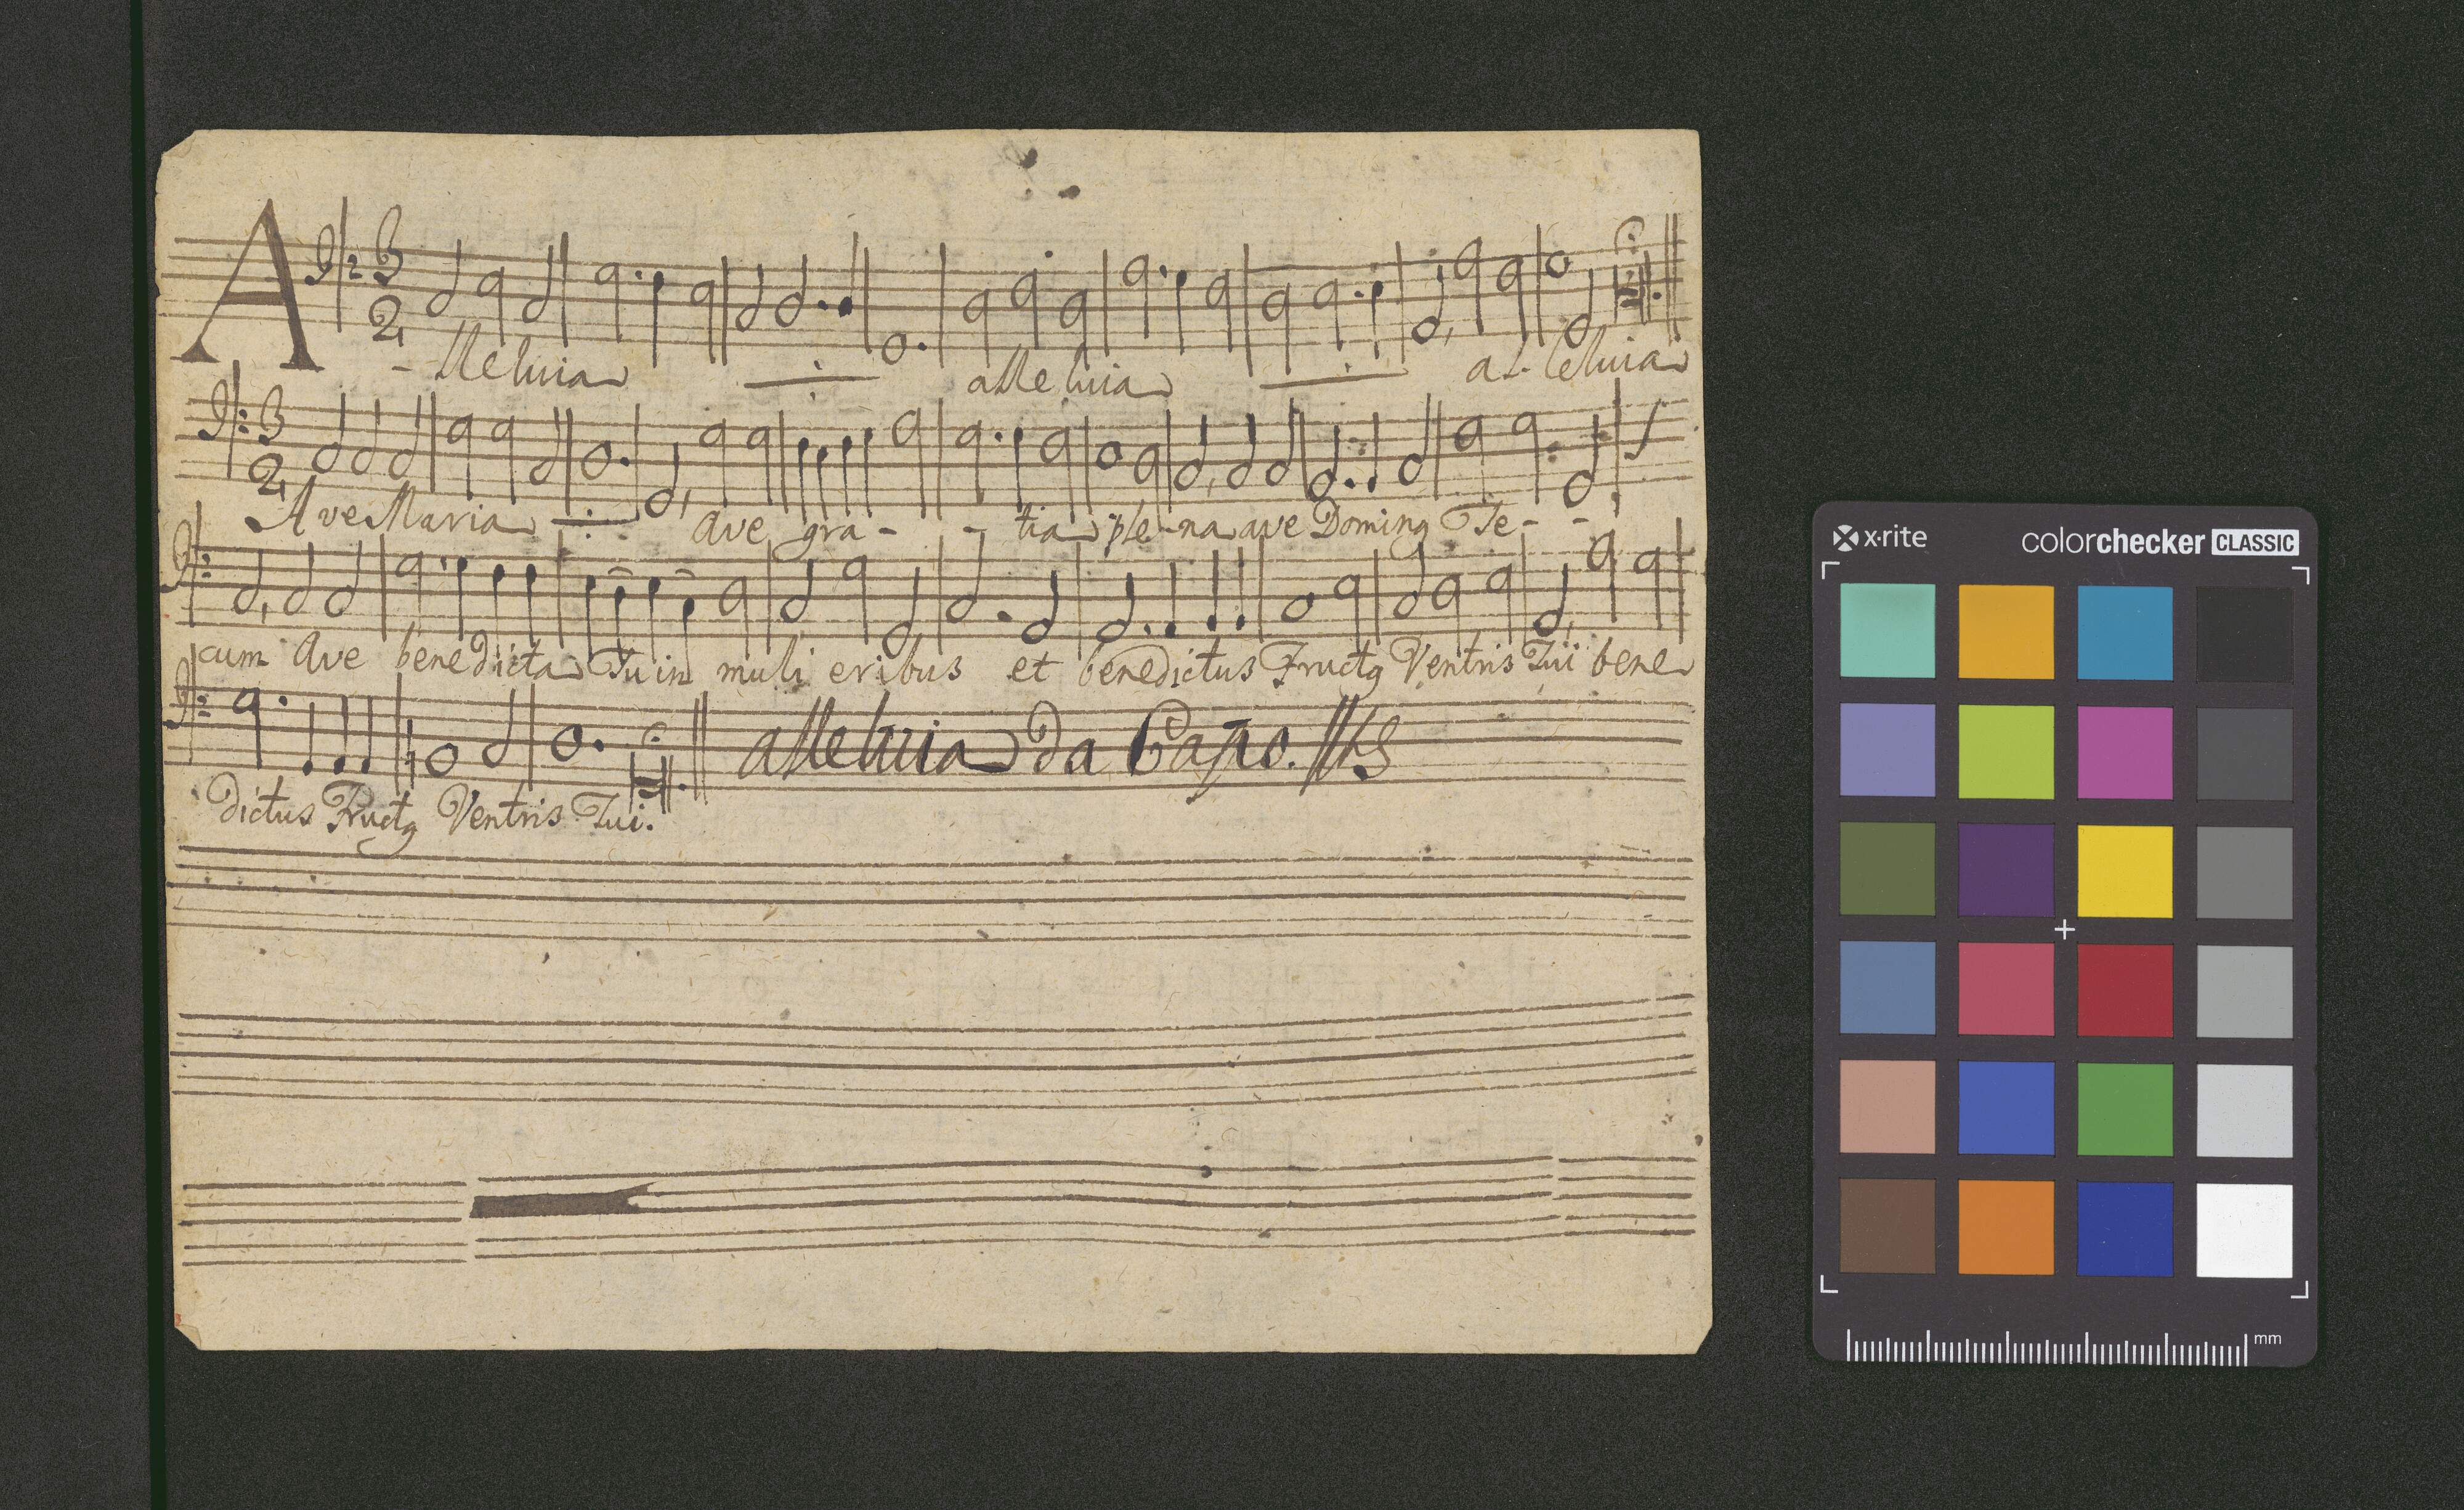 A - lleluia alleluia al-leluia
Ave Maria ave gra - - tia ple-na ave Dominꝰ Te - -
cum Ave benedicta Tu in muli eribus et benedictus Fructꝰ Ventris Tui bene
alleluia Da Capo.
dictus Fructꝰ Ventris Tui.
x·rite colorchecker CLASSIC
mm